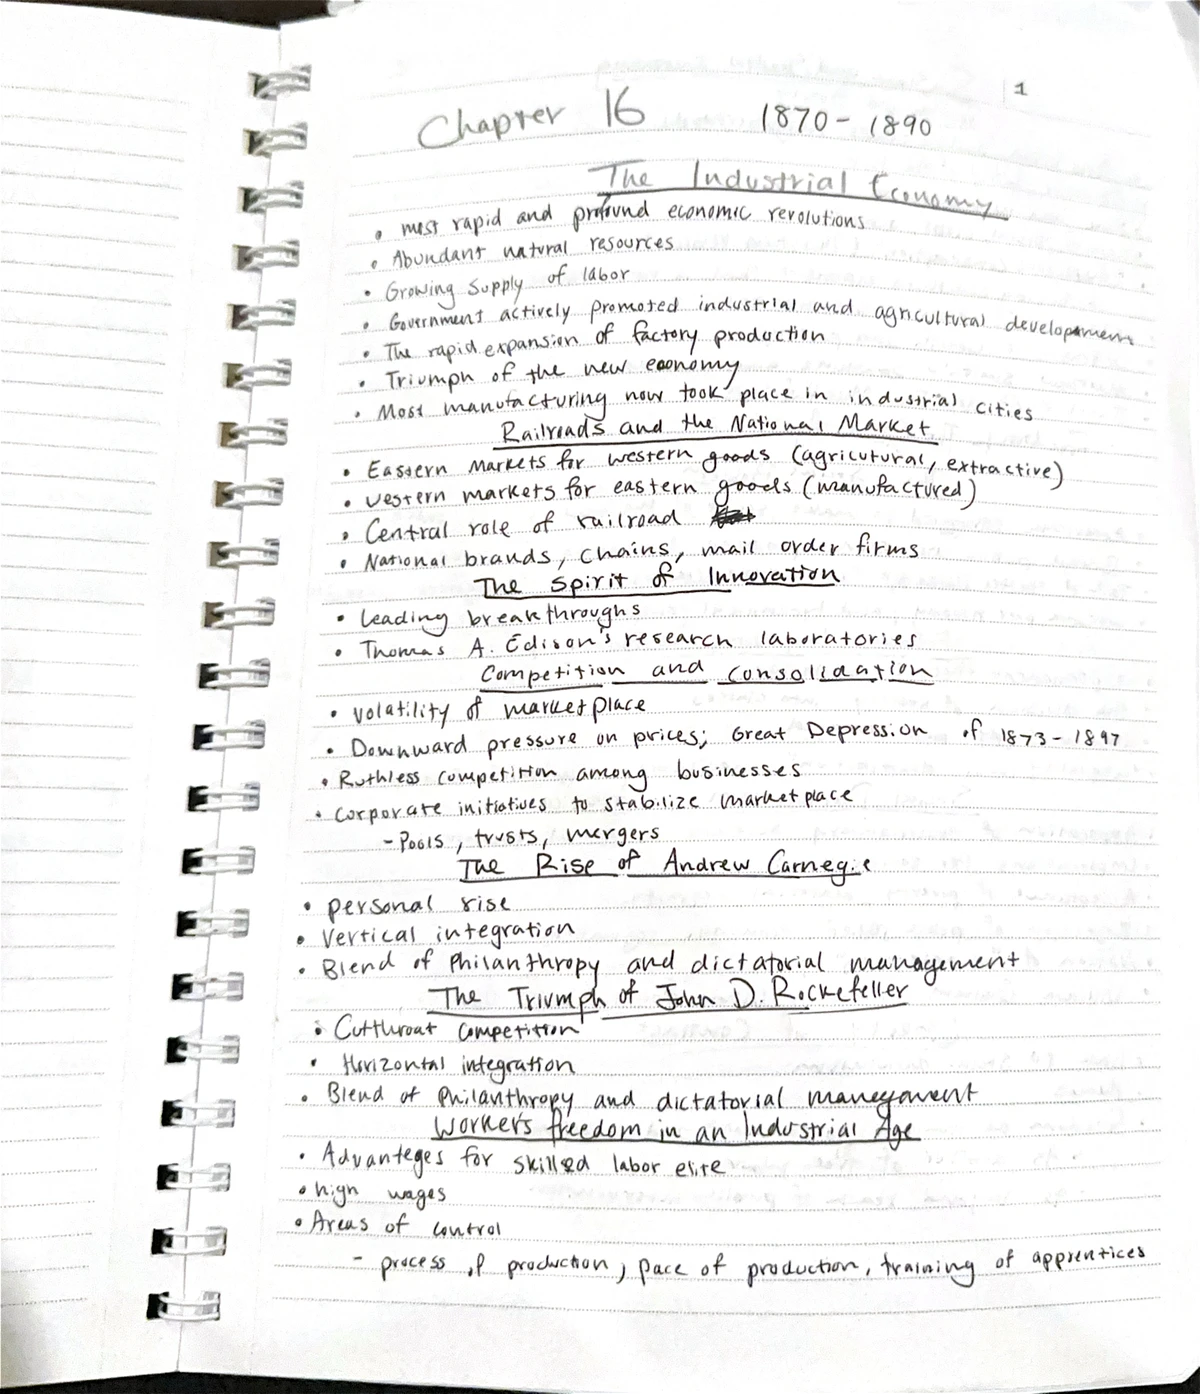 1
Chapter 16 1870 - 1890
The Industrial Economy
• most rapid and profound economic revolutions
• Abundant natural resources
• Growing supply of labor
• Government actively promoted industrial and agricultural development
• The rapid expansion of factory production
• Triumph of the new economy
• Most manufacturing now took place in industrial cities
Railroads and the National Market
• Eastern Markets for western goods (agricutural, extractive)
• western markets for eastern goods (manufactured)
• Central role of railroad
• National brands, chains, mail order firms
The Spirit of Innovation
• leading breakthroughs
• Thomas A. Edison's research laboratories
Competition and consolidation
• volatility of marketplace
• Downward pressure on prices; Great Depression of 1873 - 1897
• Ruthless competition among businesses
• corporate initiatives to stabilize marketplace
- Pools, trusts, mergers
The Rise of Andrew Carnegie
• personal rise
• Vertical integration
• Blend of Philanthropy and dictatorial management
The Triumph of John D. Rockefeller
• Cutthroat competition
• Horizontal integration
• Blend of Philanthropy and dictatorial management
Worker's freedom in an Industrial Age
• Advanteges for skilled labor elite
• high wages
• Areas of control
- process of production, pace of production, training of apprentices